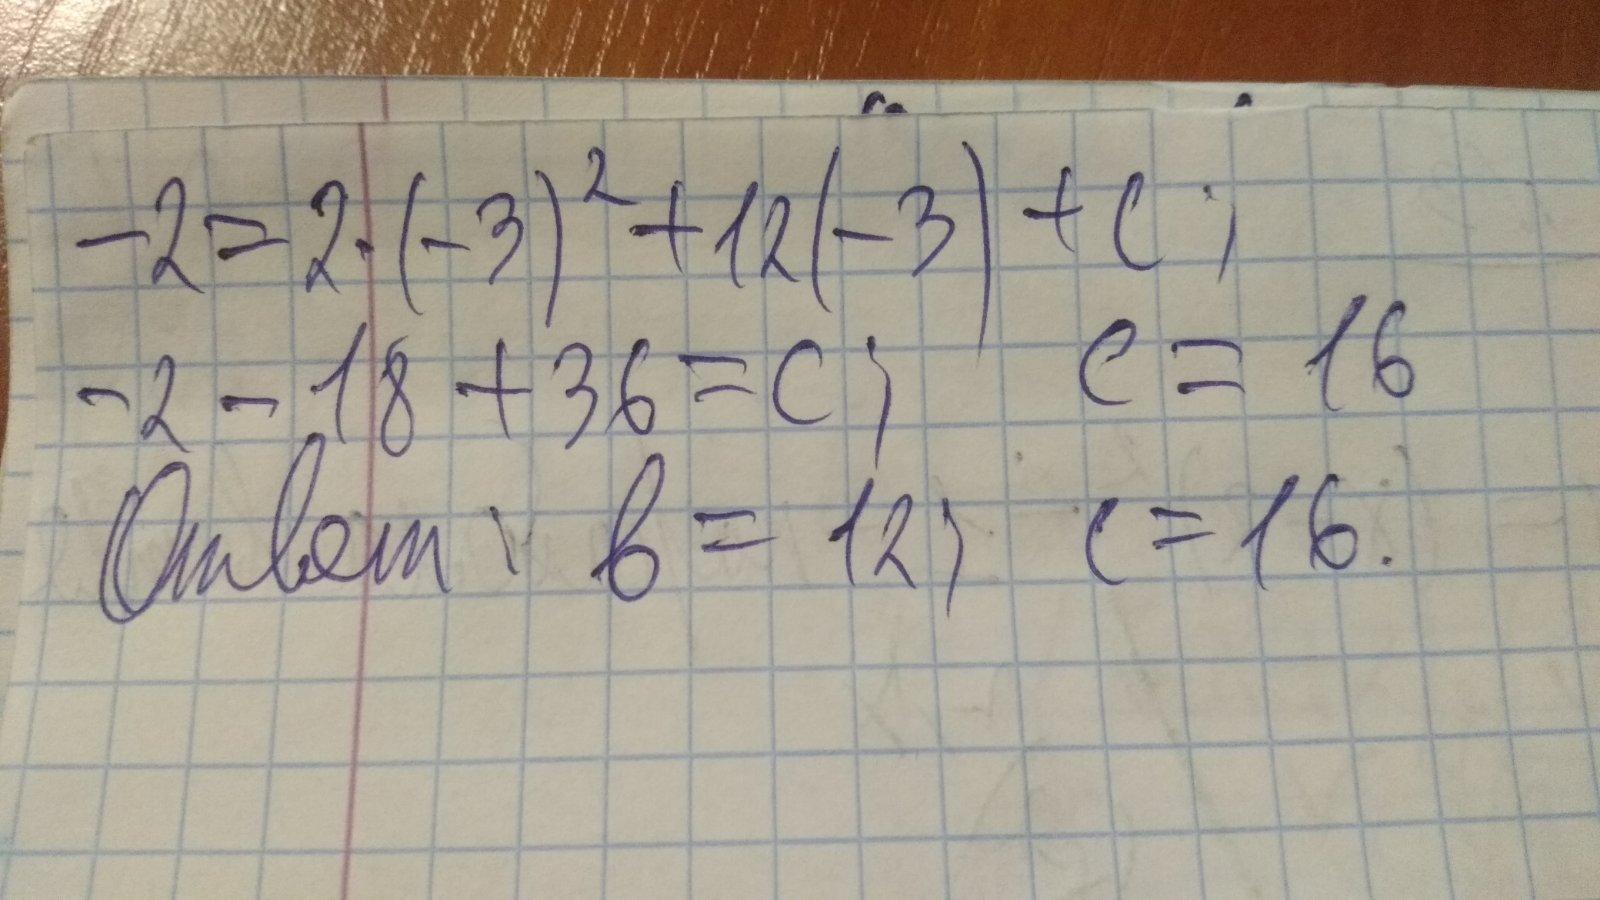 -2=2·(-3)²+12(-3)+c;
-2-18+36=c; c=16
Ответ: b=12; c=16.